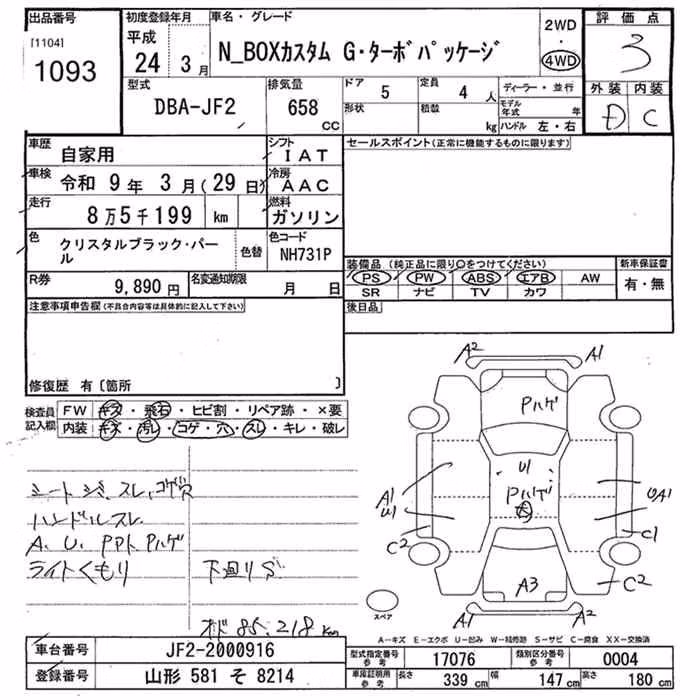 出品番号
[1104]
1093
初度登録年月
平成
24 3月
車名・グレード
N_BOXカスタム G・ターボパッケージ
2WD
・
4WD
評価点
3
外装 内装
D C
型式
DBA-JF2
排気量
658
CC
ドア
5
定員
4人
形状
積載
kg
ディーラー・並行
モデル年式 年
ハンドル 左・右
車歴
自家用
シフト
IAT
車検
令和 9年 3月(29日)
冷房
AAC
走行
8万5千199 km
燃料
ガソリン
色
クリスタルブラック・パール
色替
色コード
NH731P
R券
9,890円
名変通知期限
月 日
セールスポイント(正常に機能するものに限ります)
装備品(純正品に限り○をつけてください)
PS PW ABS エアB AW
SR ナビ TV カワ
新車保証書
有・無
後日品
注意事項申告欄(不具合内容等は具体的に記入して下さい)
修復歴 有〔箇所 〕
検査員記入欄
FW キズ・飛石・ヒビ割・リペア跡・×要
内装 キズ・汚レ・コゲ・穴・スレ・キレ・破レ
シートシミ、スレ、コゲ穴
ハンドルスレ
A、U、PPト、Pハゲ
ライトくもり 下廻りS
オド 85,218km
A2 A1
Pハゲ
U1
Pハゲ
大
A1
U1
UA1
C2 C1
A3 C2
A1 A2
スペア
A―キズ E―エクボ U―凹み W―補修跡 S―サビ C―腐食 XX―交換済
車台番号
JF2-2000916
登録番号
山形 581 そ 8214
型式指定番号
参考
17076
類別区分番号
参考
0004
車庫証明用
参考
長さ 339 cm
幅 147 cm
高さ 180 cm